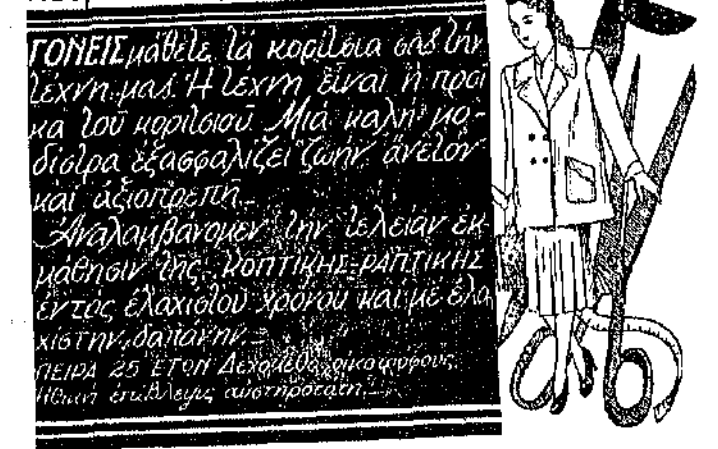 ΓΟΝΕΙΣ μάθετε τά κορίτσια σας τήν
τέχνη μας. Ἡ τέχνη εἶναι ἡ προῖ
κα τοῦ κοριτσιοῦ. Μιά καλή μο-
δίστρα ἐξασφαλίζει ζωήν ἄνετον
καί ἀξιοπρεπῆ.
Ἀναλαμβάνομεν τήν τελείαν ἐκ-
μάθησιν τῆς ΚΟΠΤΙΚΗΣ-ΡΑΠΤΙΚΗΣ
ἐντός ἐλαχίστου χρόνου καί μέ ἐλα
χίστην δαπάνην.
ΠΕΙΡΑ 25 ΕΤΩΝ Δεχόμεθα οἰκοτρόφους.
Ἠθική ἐπίβλεψις αὐστηροτάτη.